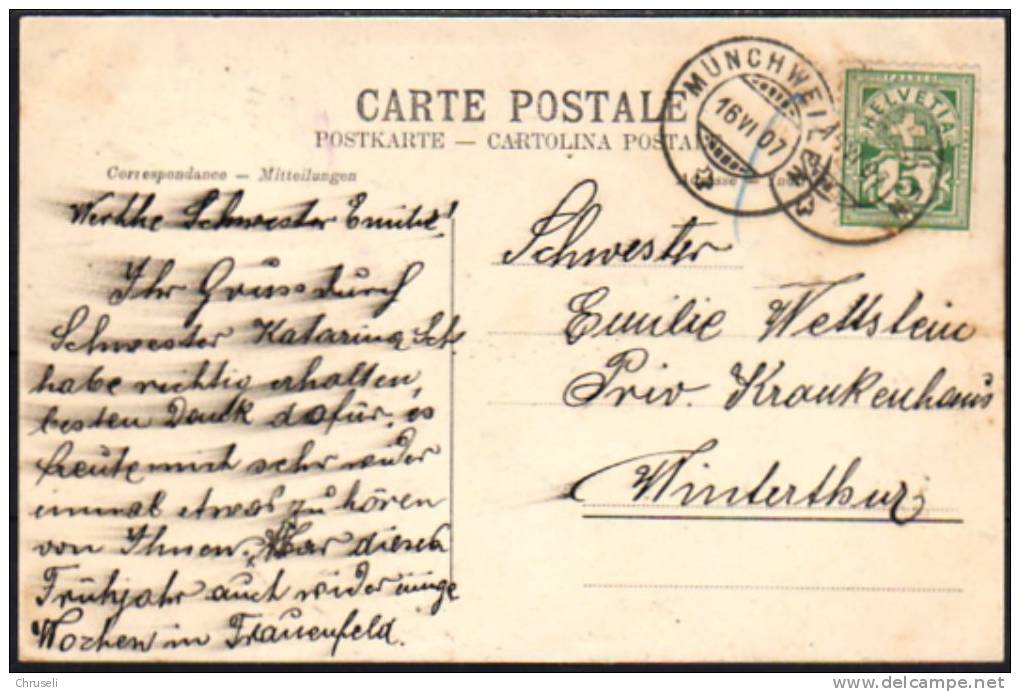 CARTE POSTALE
POSTKARTE — CARTOLINA POSTAL
Correspondance — Mitteilungen
MÜNCHWEILEN
16 VI 07
HELVETIA
5
Werthe Schwester Emilie!
Ihr Gruss durch
Schwester Katarina Sch.
habe richtig erhalten,
besten Dank dafür, es
freute mich sehr wider
einmal etwas zu hören
von Ihnen. War diesen
Frühjahr auch wider einige
Wochen in Frauenfeld.
Schwester
Emilie Wettstein
Priv. Krankenhaus
Winterthur
Chruseli
delcampe.net